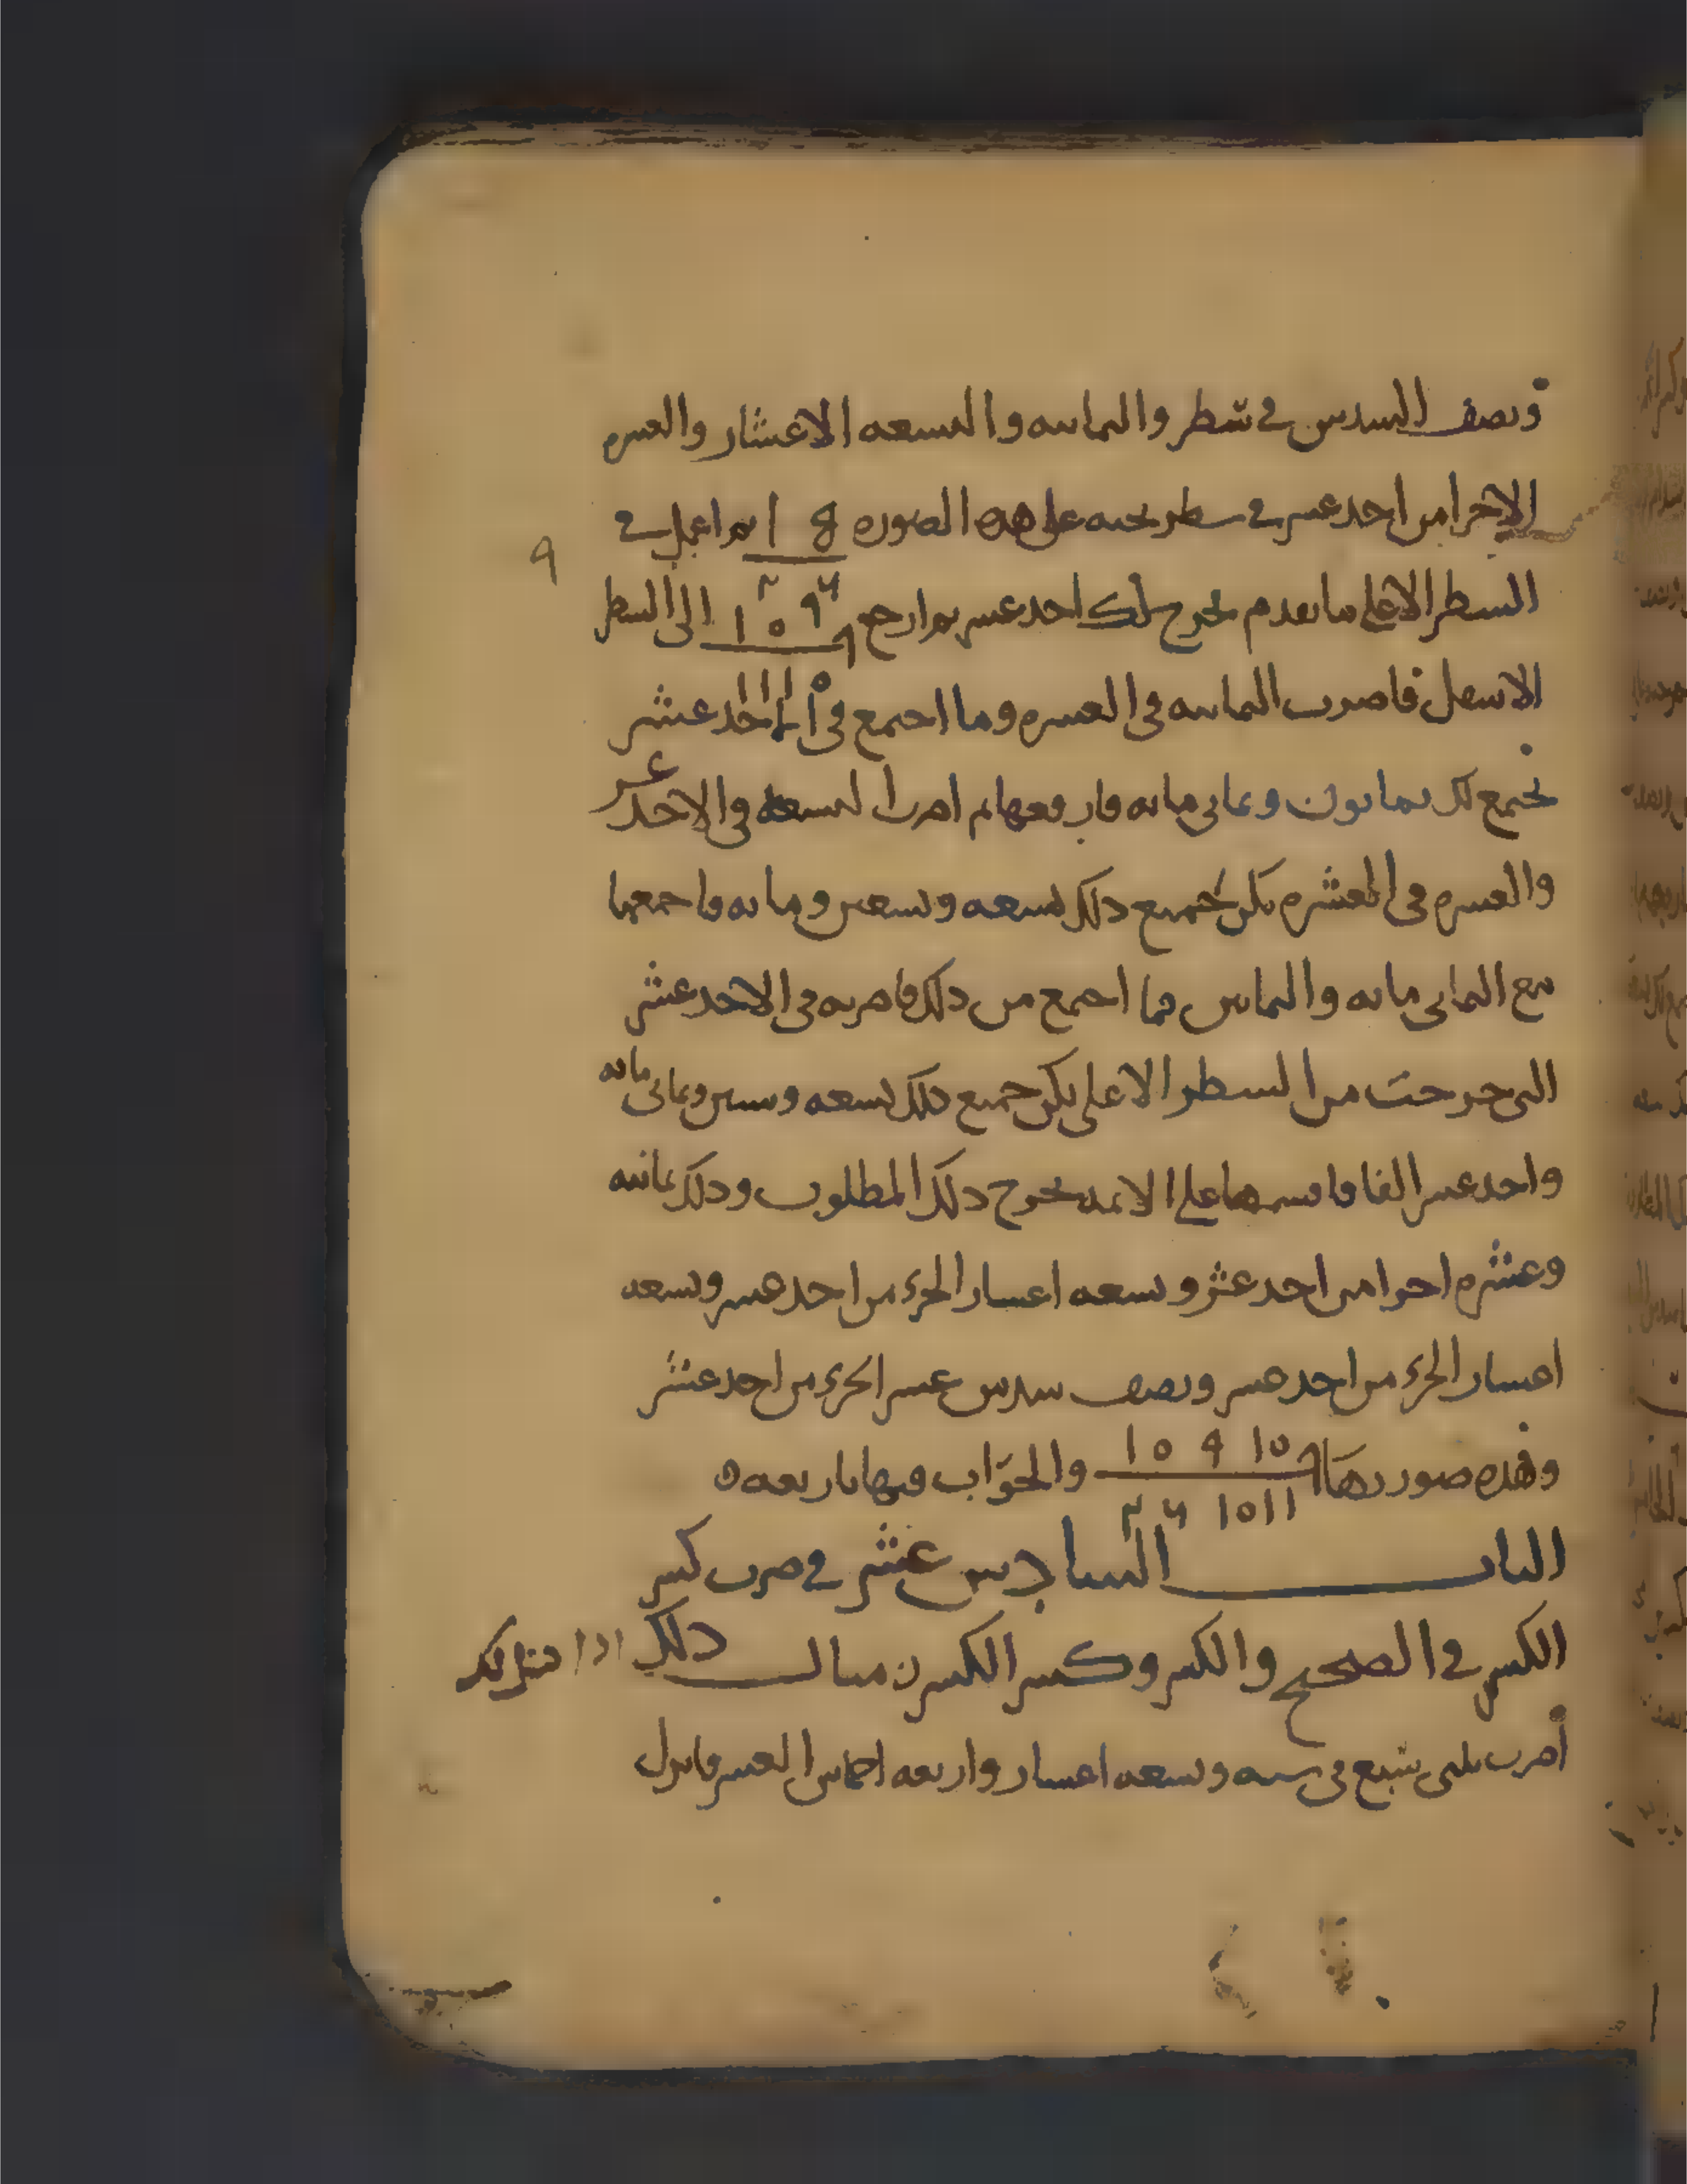 ونصف السدس في سطر والثمانيه والتسعه الاعشار والعشره
الاجزا من احد عشر في سطر تحته على هذه الصوره 8 1 ثم اعمل في
السطر الاعلى ما تقدم تخرج لك احد عشر ثم ارجع الى السطر
الاسفل فاضرب الثمانيه في العشره وما اجتمع في الاحد عشر
تجتمع لك ثمانون وثماني مايه فارفعها ثم اضرب التسعه في الاحد عشر
والعشره في العشره يكن جميع ذلك تسعه وتسعين ومايه فاجمعها
مع الثماني مايه والثمانين فما اجتمع من ذلك فاضربه في الاحد عشر
التي خرجت من السطر الاعلى يكن جميع ذلك تسعه وستين وثماني مايه
واحد عشر الفا فاقسمها على الايمه تخرج ذلك المطلوب وذلك ثمانيه
وعشره اجزا من احد عشر وتسعه اعشار الجزء من احد عشر وتسعه
اعشار الجزء من احد عشر ونصف سدس عشر الجزء من احد عشر
وهذه صورتها والجواب فيها باربعه ه
الباب السادس عشر في ضرب كسر
الكسر في الصحيح والكسر وكسر الكسر مثال ذلك اذا قيل لك
اضرب ثلثي سبع في سته وتسعه اعشار واربعه اخماس العشر فانزل